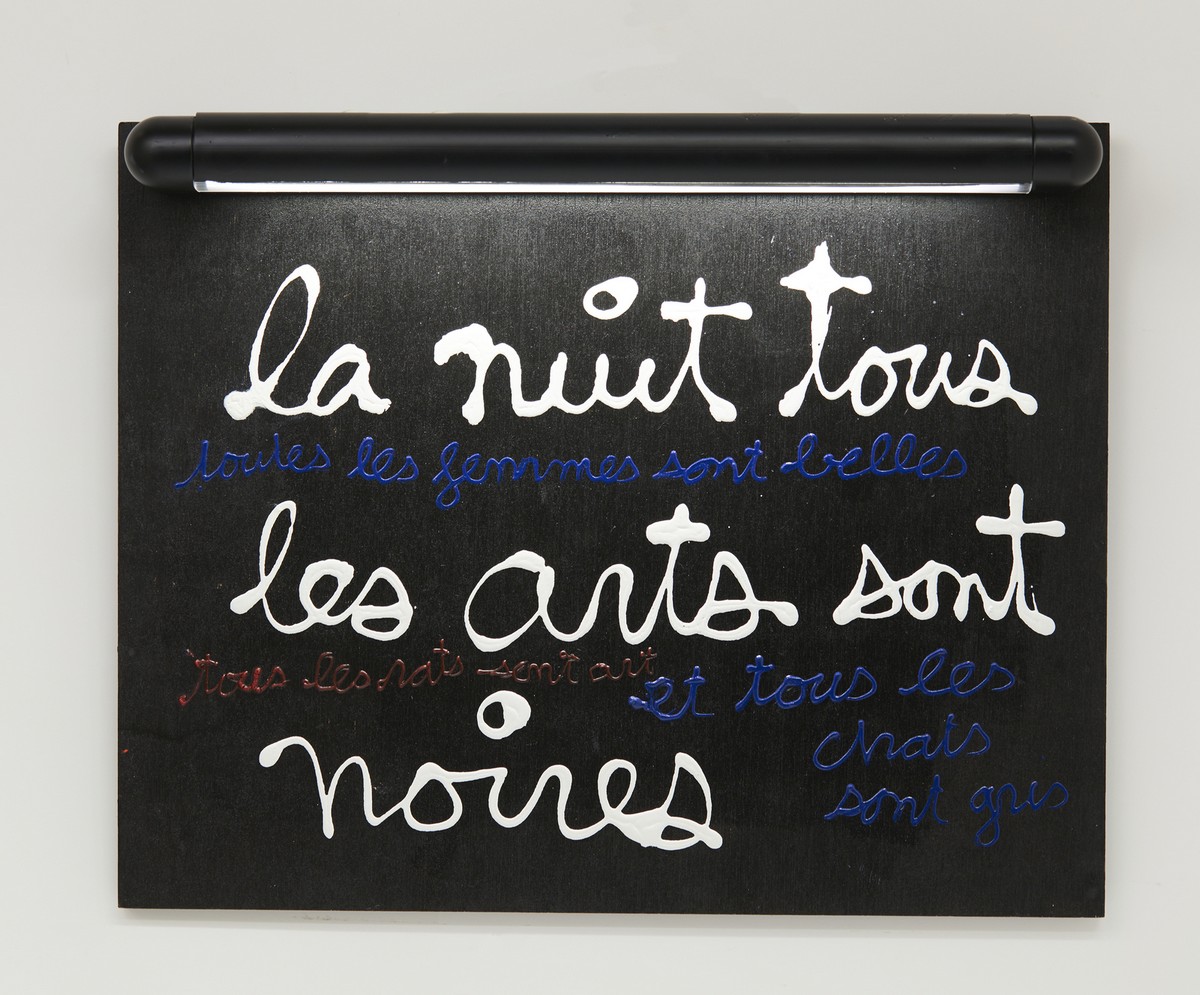 la nuit tous
toutes les femmes sont belles
les arts sont
tous les rats sont art
et tous les
chats
sont gris
noires